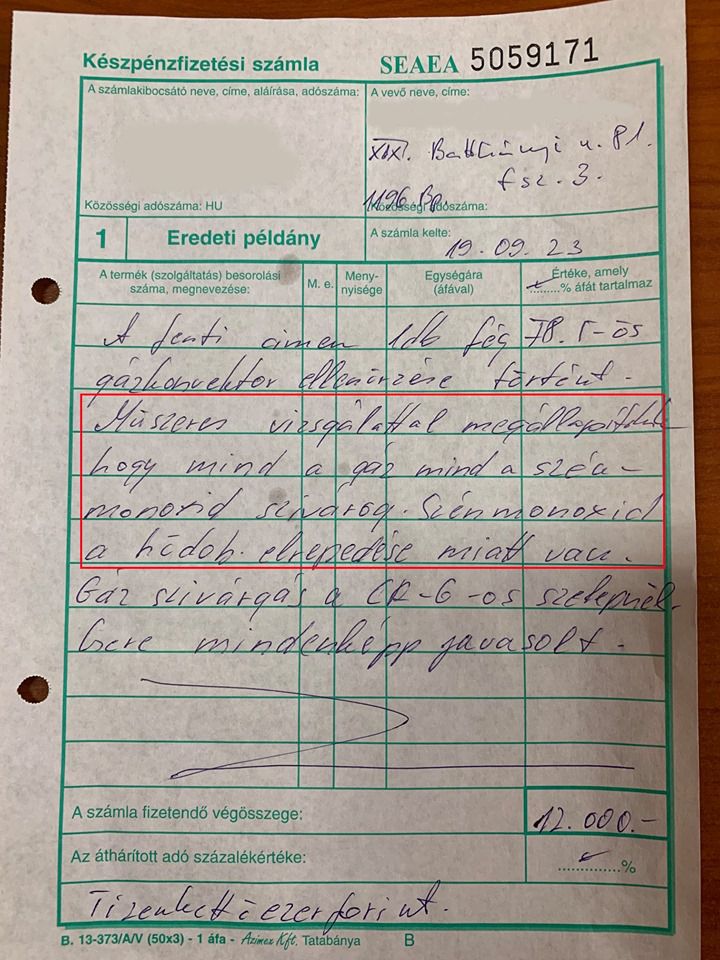 Készpénzfizetési számla SEAEA 5059171
A számlakibocsátó neve, címe, aláírása, adószáma:
A vevő neve, címe:
XIX. Batthányi u. 81.
fsz. 3.
1196 Bp.
Közösségi adószáma: HU
Közösségi adószáma:
1 Eredeti példány
A számla kelte:
19.09.23
A termék (szolgáltatás) besorolási száma, megnevezése:
M. e.
Mennyisége
Egységára (áfával)
Értéke, amely
........% áfát tartalmaz
A fenti címen 1db fég F8.
gázkonvektor ellenőrzése történt.
Műszeres vizsgálattal
hogy mind a gáz mind a szén-
monoxid szivárog. Szénmonoxid
a hődob. elrepedése miatt van.
Gáz szivárgás a CR-6-os szelepnél.
Csere mindenképp javasolt.
A számla fizetendő végösszege:
12.000.-
Az áthárított adó százalékértéke:
............%
Tizenkettőezerforint.
B. 13-373/A/V (50x3) - 1 áfa - Azimex Kft. Tatabánya B